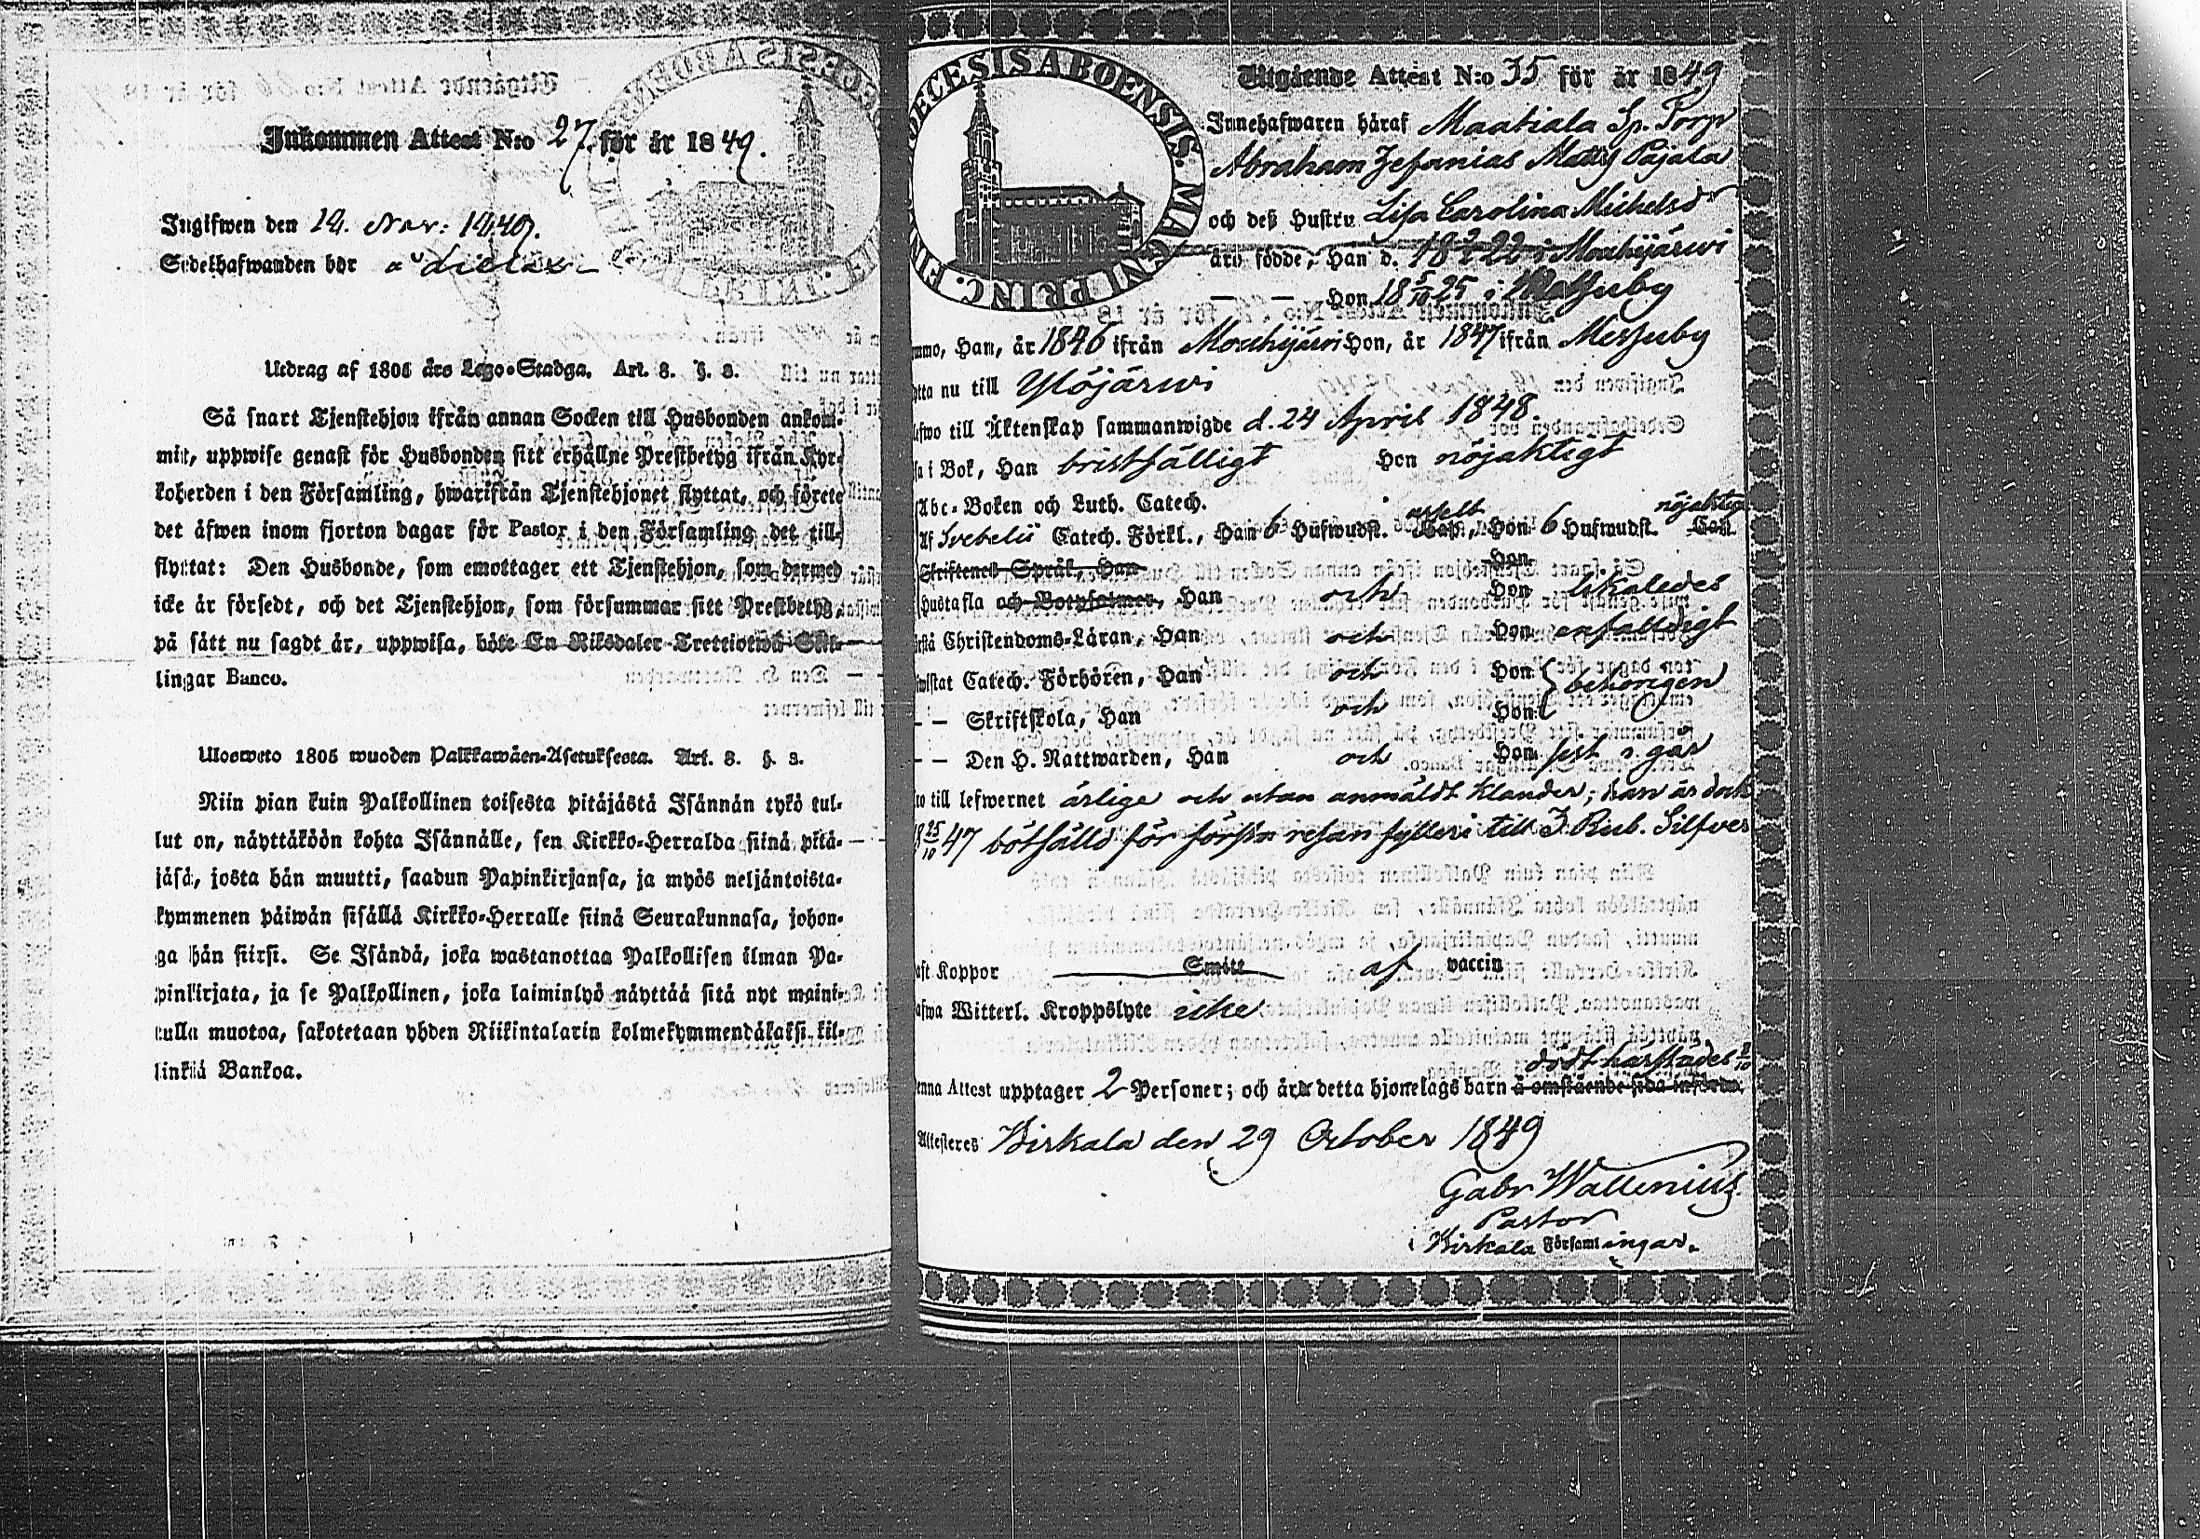 Inkommen Attest N:o 27. för år 1849.
Ingifwen den 14. Nov: 1849.
Sedelhafwanden bor
Utdrag af 1805 års Lego-Stadga. Art. 8. §. 3.
Så snart Tjenstehjon ifrån annan Socken till Husbonden ankom-
mit, uppwise genast för Husbonden sitt erhållne Prestbetyg ifrån Kyr-
koherden i den Församling, hwarifrån Tjenstehjonet flyttat, och förete
det äfwen inom fjorton dagar för Pastor i den Församling det till-
flyttat: Den Husbonde, som emottager ett Tjenstehjon, som dermed
icke är försedt, och det Tjenstehjon, som försummar sitt Prestbetyg,
på sätt nu sagdt är, uppwisa, böte En Riksdaler Trettiotwå Skil-
lingar Banco.
Ulosweto 1805 wuoden Palkkawäen-Asetuksesta. Art. 8. §. 3.
Niin pian kuin Palkollinen toisesta pitäjästä Isännän tykö tul-
lut on, näyttäköön kohta Isännälle, sen Kirkko-Herralda siinä pitä-
jäsä, josta hän muutti, saadun Papinkirjansa, ja myös neljäntoista-
kymmenen päiwän sisällä Kirkko-Herralle siinä Seurakunnasa, johon-
ga hän siirsi. Se Isändä, joka wastanottaa Palkollisen ilman Pa-
pinkirjata, ja se Palkollinen, joka laiminlyö näyttää sitä nyt maini-
tulla muotoa, sakotetaan yhden Riikintalarin kolmekymmendäkaksi kil-
linkiä Bankoa.
DIECESIS ABOENSIS. MAGNI PRINC. FIN
Utgående Attest N:o 35 för år 1849
Innehafwaren häraf Maatiala Sp. Torp
Abraham Zefanias Matts Pajala
och deß Hustru Lisa Carolina Michelsdr
äro födde, Han d. 18 2/2 22 i Mouhijärwi
— — Hon 18 5/10 25 i Messuby
mmo, Han, år 1846 ifrån Mouhijärwi Hon, år 1847 ifrån Messuby
tta nu till Ylöjärwi
efwo till Äktenskap sammanwigde d. 24 April 1848.
sa i Bok, Han bristfälligt Hon nöjaktigt
Abc-Boken och Luth. Catech.
Af Svebelii Catech. Förkl., Han 6 Hufwudst. Cap., Hon 6 Hufwudst. nöjaktigt Cap.
Skriftenes Språk, Han Hon
Hustafla och Botpsalmer, Han och Hon likaledes
rstå Christendoms-Läran, Han och Hon enfaldigt
wistat Catech. Förhören, Han och Hon } behörigen
— — Skriftskola, Han och Hon
— — Den H. Nattwarden, Han och Hon sist i går
ro till lefwernet ärlige och utan anmäldt klander; han är dock
18 25/10 47 bötfälld för första resan fylleri till 3 Rub. Silfver
aft Koppor Smitt af vaccin
afwa Witterl. Kroppslyte icke
dödt härstädes 8/10
enna Attest upptager 2 Personer; och är detta hjonelags barn å omstående sida införda.
Attesteres Birkala den 29 October 1849
Gabr Wallenius
Pastor
i Birkala Församlingar.